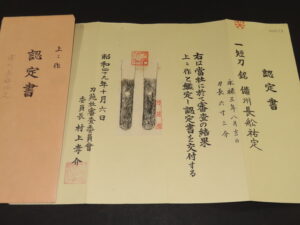 認定書
一短刀 銘 備州長舩祐定
永禄五年八月吉日
刃長六寸二分
右は當社に於て審査の結果
上々作と鑑定し認定書を交付する
昭和四十九年十月六日
刀苑社審査委員會
委員長 村上孝介
上々作
認定書